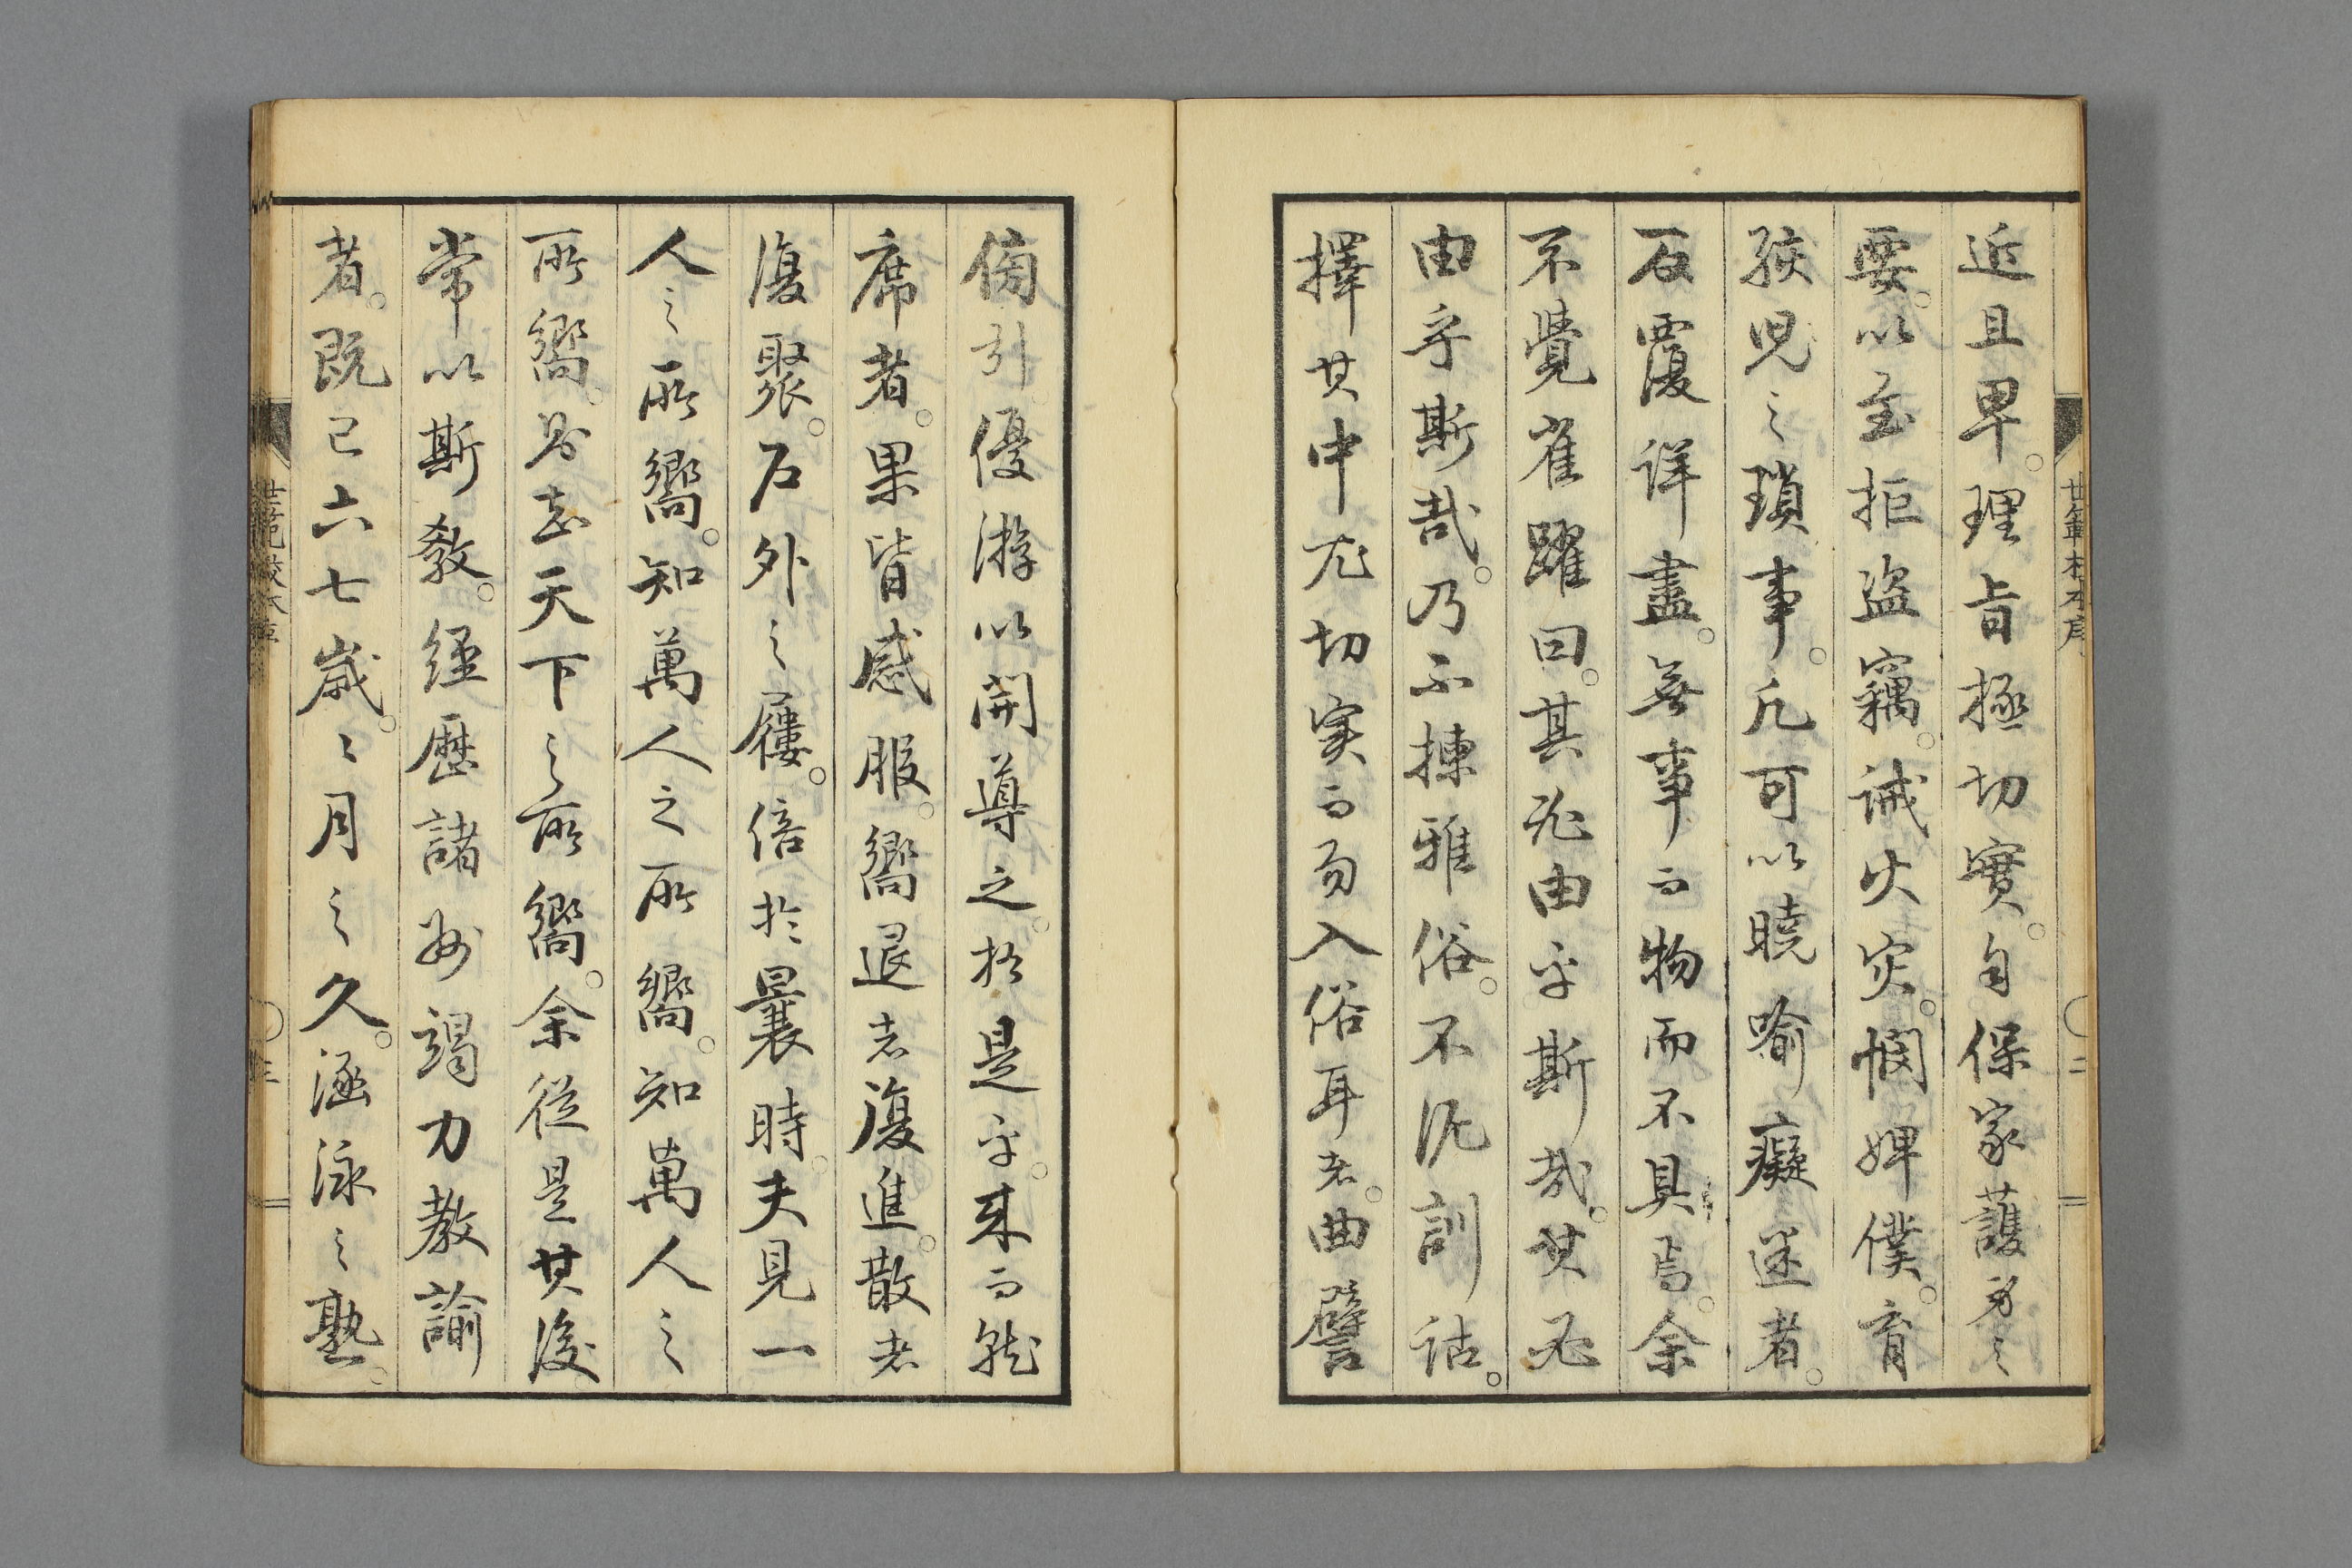 世範校本序
二
近且卑。理旨極切實。自保家護身之
要。以至拒盜竊。誡火灾。憫婢僕。育
孩児之瑣事。凡可以曉喻癡迷者。
反覆详盡。無事而物而不具焉。余
不覺雀躍曰。其必由乎斯哉。其必
由乎斯哉。乃不揀雅俗。不泥訓詁。
擇其中尤切実而易入俗耳者。曲譬
傍引優游以開導之。於是乎。来而就
席者。果皆感服。嚮退者復進。散者
復聚。戶外之屨。倍於曩時。夫見一
人之所嚮。知萬人之所嚮。知萬人之
所嚮。則知天下之所嚮。余從是其後
常以斯教。經歷諸州竭力教諭
者。既已六七歲。歲月之久。涵泳之熟。
世範校本序
三